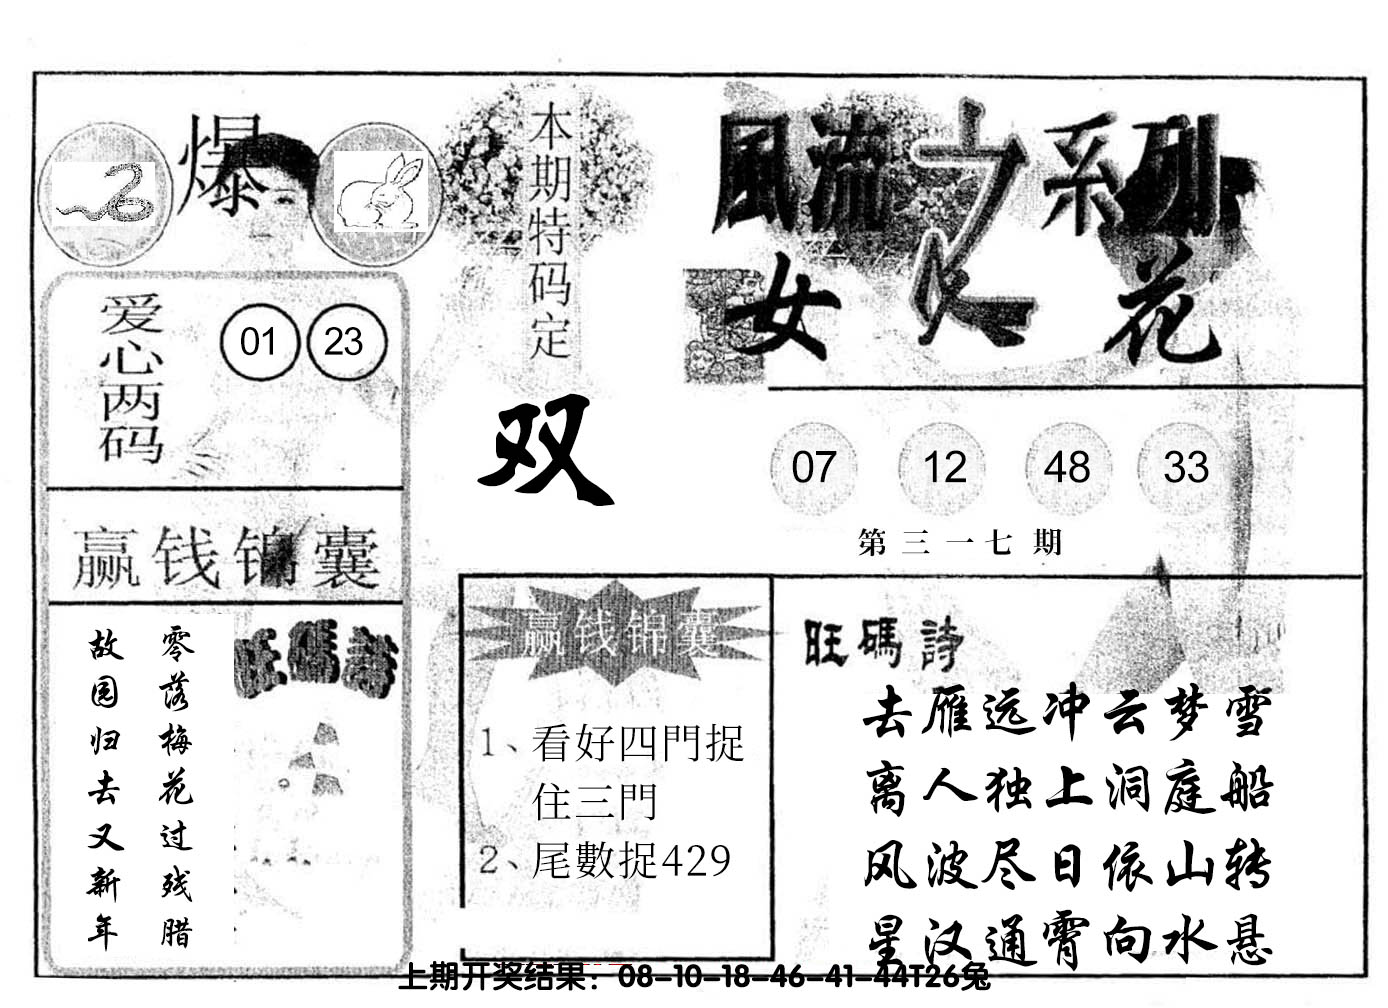 爆
本期特码定
双
風流之系列
女人花
爱心两码
01 23
07 12 48 33
第三一七期
赢钱锦囊
零落梅花过残腊
故园归去又新年
旺碼詩
赢钱锦囊
1、看好四門捉
住三門
2、尾數捉429
旺碼詩
去雁远冲云梦雪
离人独上洞庭船
风波尽日依山转
星汉通霄向水悬
上期开奖结果：08-10-18-46-41-44T26兔